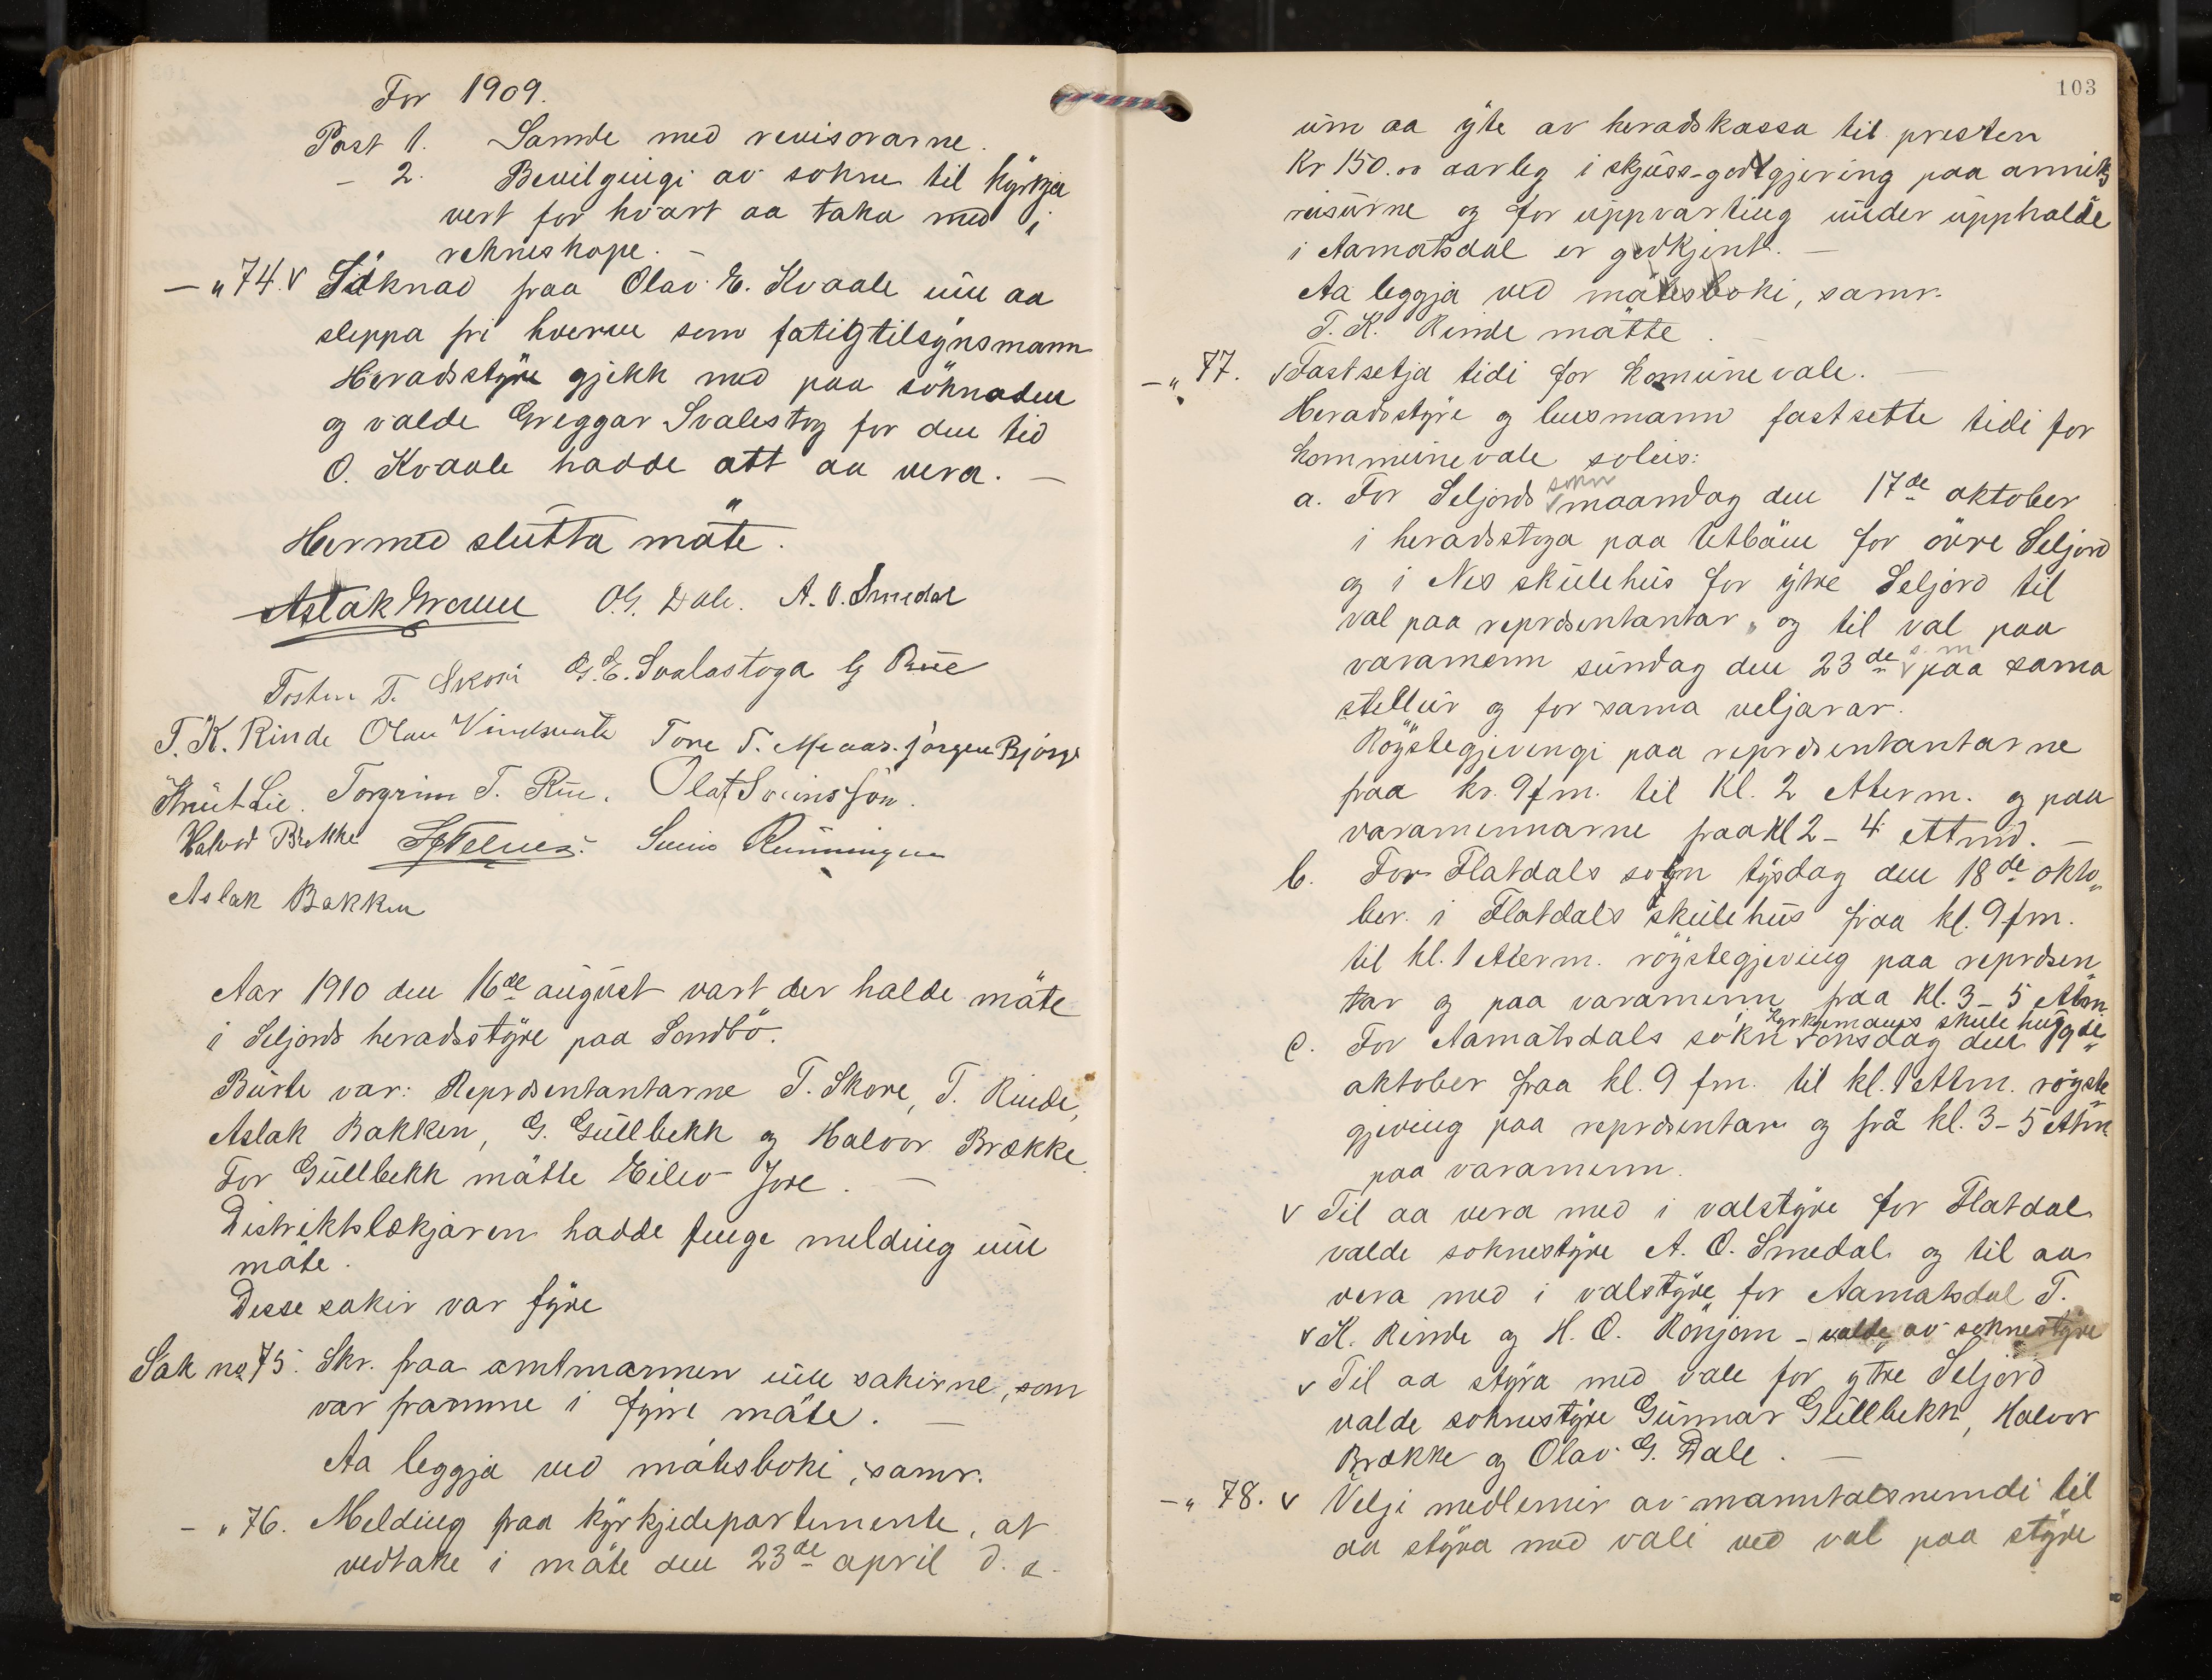 For 1909.
Post 1. Samde med revisorarne.
- 2. Bevilgingi av sokne til kyrkja
vert for kvart aa taka med i
rekneskape. -
- " 74. v Söknad fraa Olav E. Kvaale um aa
sleppa fri kverve som fatigtilsynsmann
Heradsstyre gjekk med paa söknaden
og valde Greggar Svalestog for den tid
O. Kvaale hadde att aa vera. -
Hermed slutta möte.
Aslak Graver O.G. Dale. A. O. Smedal
Tosten T. Skori G.E. Svalastoga G Rue
T. K. Rinde Olav Tore T. Moaas. Jörgen Bjørge
Knut Lie. Torgrim T. Rue. Olaf Sveinssön.
Halvor Brekke Svein Runningen
Aslak Bakken
Aar 1910 den 16de august vart der halde möte
i Seljords heradsstyre paa Sondbö.
Burte var: Repræsentantarne T. Skore, T. Rinde,
Aslak Bakken, G. Gullbekk og Halvor Brække.
For Gullbekk mötte Eilev Jore. -
Distriktslækjaren hadde fenge melding um
möte.
Desse sakir var fyre
Sak no 75. Skr. fraa amtmannen um sakirne, som
var framme i fyrre möte. -
Aa leggja ved mötesboki, samr.
- " 76. Melding fraa kyrkjedepartemente, at
vedtake i möte den 23de april d. a.
103
um aa yte av heradskassa til presten
Kr 150.00 aarleg i skjuss-godtgjering paa anneks
reisurne og for uppvarting under upphalde
i Aamotsdal er godkjent. -
Aa leggja ved mötesboki, samr.
T. K. Rinde mötte.
- " 77. v Fastsetja tidi for komunevale. -
Heradsstyre og lensmann fastsette tidi for
kommunevale soleis:
sokn
a. For Seljords v maandag den 17de oktober
i heradsstoga paa Utböen for övre Seljord
og i Nes skulehus for ytre Seljord til
val paa repræsentantar, og til val paa
s. m
varamenn sundag den 23de v paa sama
stellur og for sama veljarar.
Röystegjevingi paa repræsentantarne
fraa kr. 9 fm. til Kl. 2 Aterm. og paa
varamennarne fraa Kl 2 - 4 Attmd. -
b. For Flatdals sogn tysdag den 18de okto„
ber i Flatdals skulehus fraa kl. 9 fm.
til kl. 1 Aterm. röystegjeving paa repræsen„
tar og paa varamenn fraa Kl. 3 - 5 Atm.
Kyrkjemans skule hus
c. For Aamotsdals sokn v onsdag den 19de
oktober fraa kl. 9 fm. til kl. 1 Atm. röyste„
gjeving paa repræsentar og frå kl. 3 - 5 Atm
paa varamenn.
v Til aa vera med i valstyre for Flatdal
valde soknestyre A. O. Smedal og til aa
vera med i valstyre for Aamotsdal T.
v K. Rinde og H. O. Rönjom - valde av soknestyre
v Til aa styra med vale for ytre Seljord
valde soknestyre Gunnar Gullbekk, Halvor
Brække og Olav G. Dale. -
- " 78. v Velji medlemir av manntalsnemdi til
aa styra med vali ved val paa styre